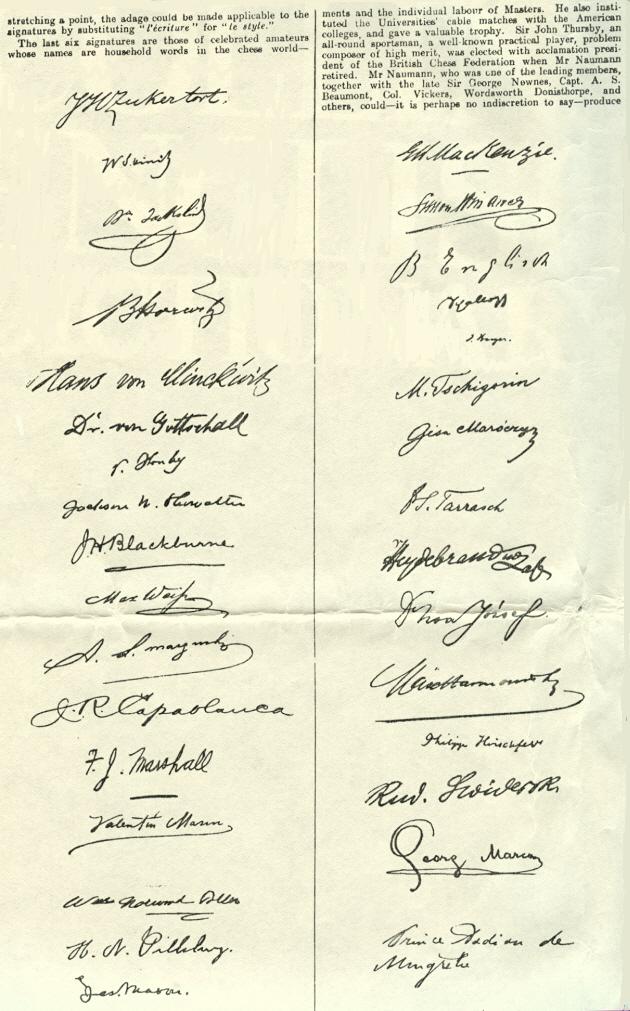 stretching a point, the adage could be made applicable to the
signatures by substituting "l'écriture" for "le style."
The last six signatures are those of celebrated amateurs
whose names are household words in the chess world—
J H Zukertort.
B Horwitz
Hans von Minckwitz
Dr. von Gottschall
Jackson W. Showalter
J. H. Blackburne
Max Weiss
J. R. Capablanca
F. J. Marshall
Valentin Marin
H. N. Pillsbury.
Jas. Mason.
ments and the individual labour of Masters. He also insti-
tuted the Universities' cable matches with the American
colleges, and gave a valuable trophy. Sir John Thursby, an
all-round sportsman, a well-known practical player, problem
composer of high merit, was elected with acclamation presi-
dent of the British Chess Federation when Mr Naumann
retired. Mr Naumann, who was one of the leading members,
together with the late Sir George Nownes, Capt. A. S.
Beaumont, Col. Vickers, Wordsworth Donisthorpe, and
others, could—it is perhaps no indiscretion to say—produce
G H MacKenzie.
Simon Winawer
B Englisch
M. Tschigorin
Géza Maróczy
Dr S. Tarrasch
Heydebrand
József
Philipp Hirschfeld
Rud. Swiderski
Georg Marco
Prince Dadian de
Mingrelie